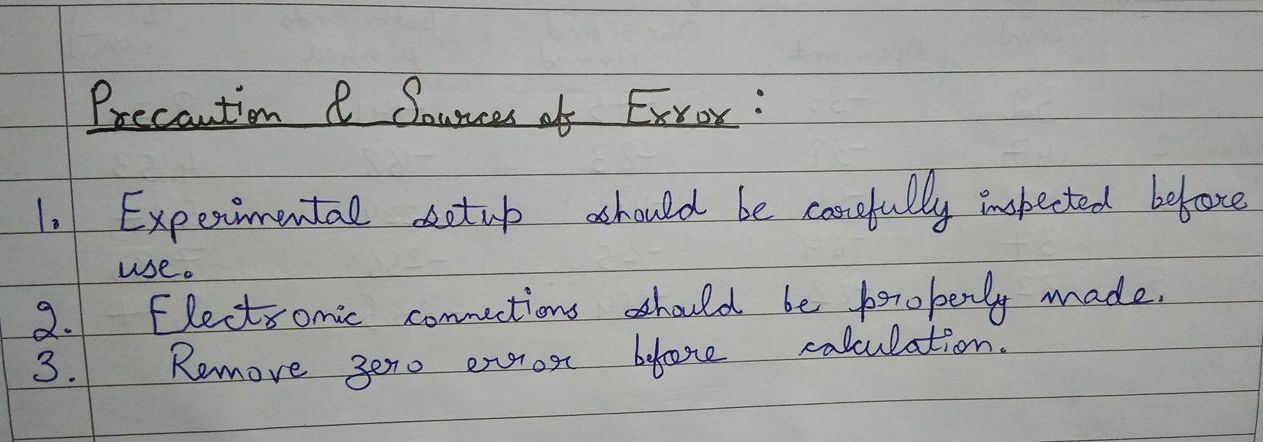 Precaution & Sources of Error :
1. Experimental setup should be carefully inspected before
use.
2. Electronic connections should be properly made.
3. Remove zero error before calculation.